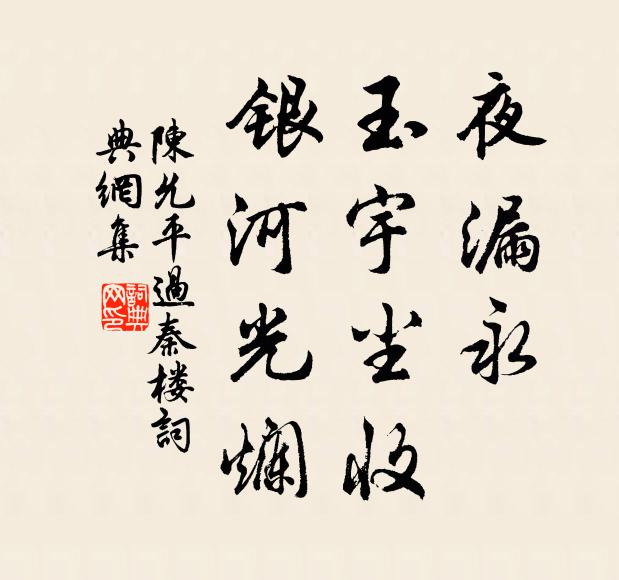 夜漏永
玉宇尘收
银河光爛
陳允平過秦楼詞
典網集
詞典网印